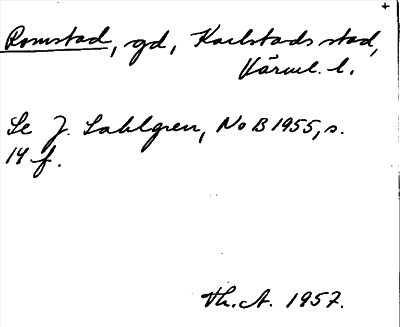 Romstad, gd, Karlstads stad,
Värml. l.
Se J. Sahlgren, NoB 1955, s.
14 f.
Th. A. 1957.